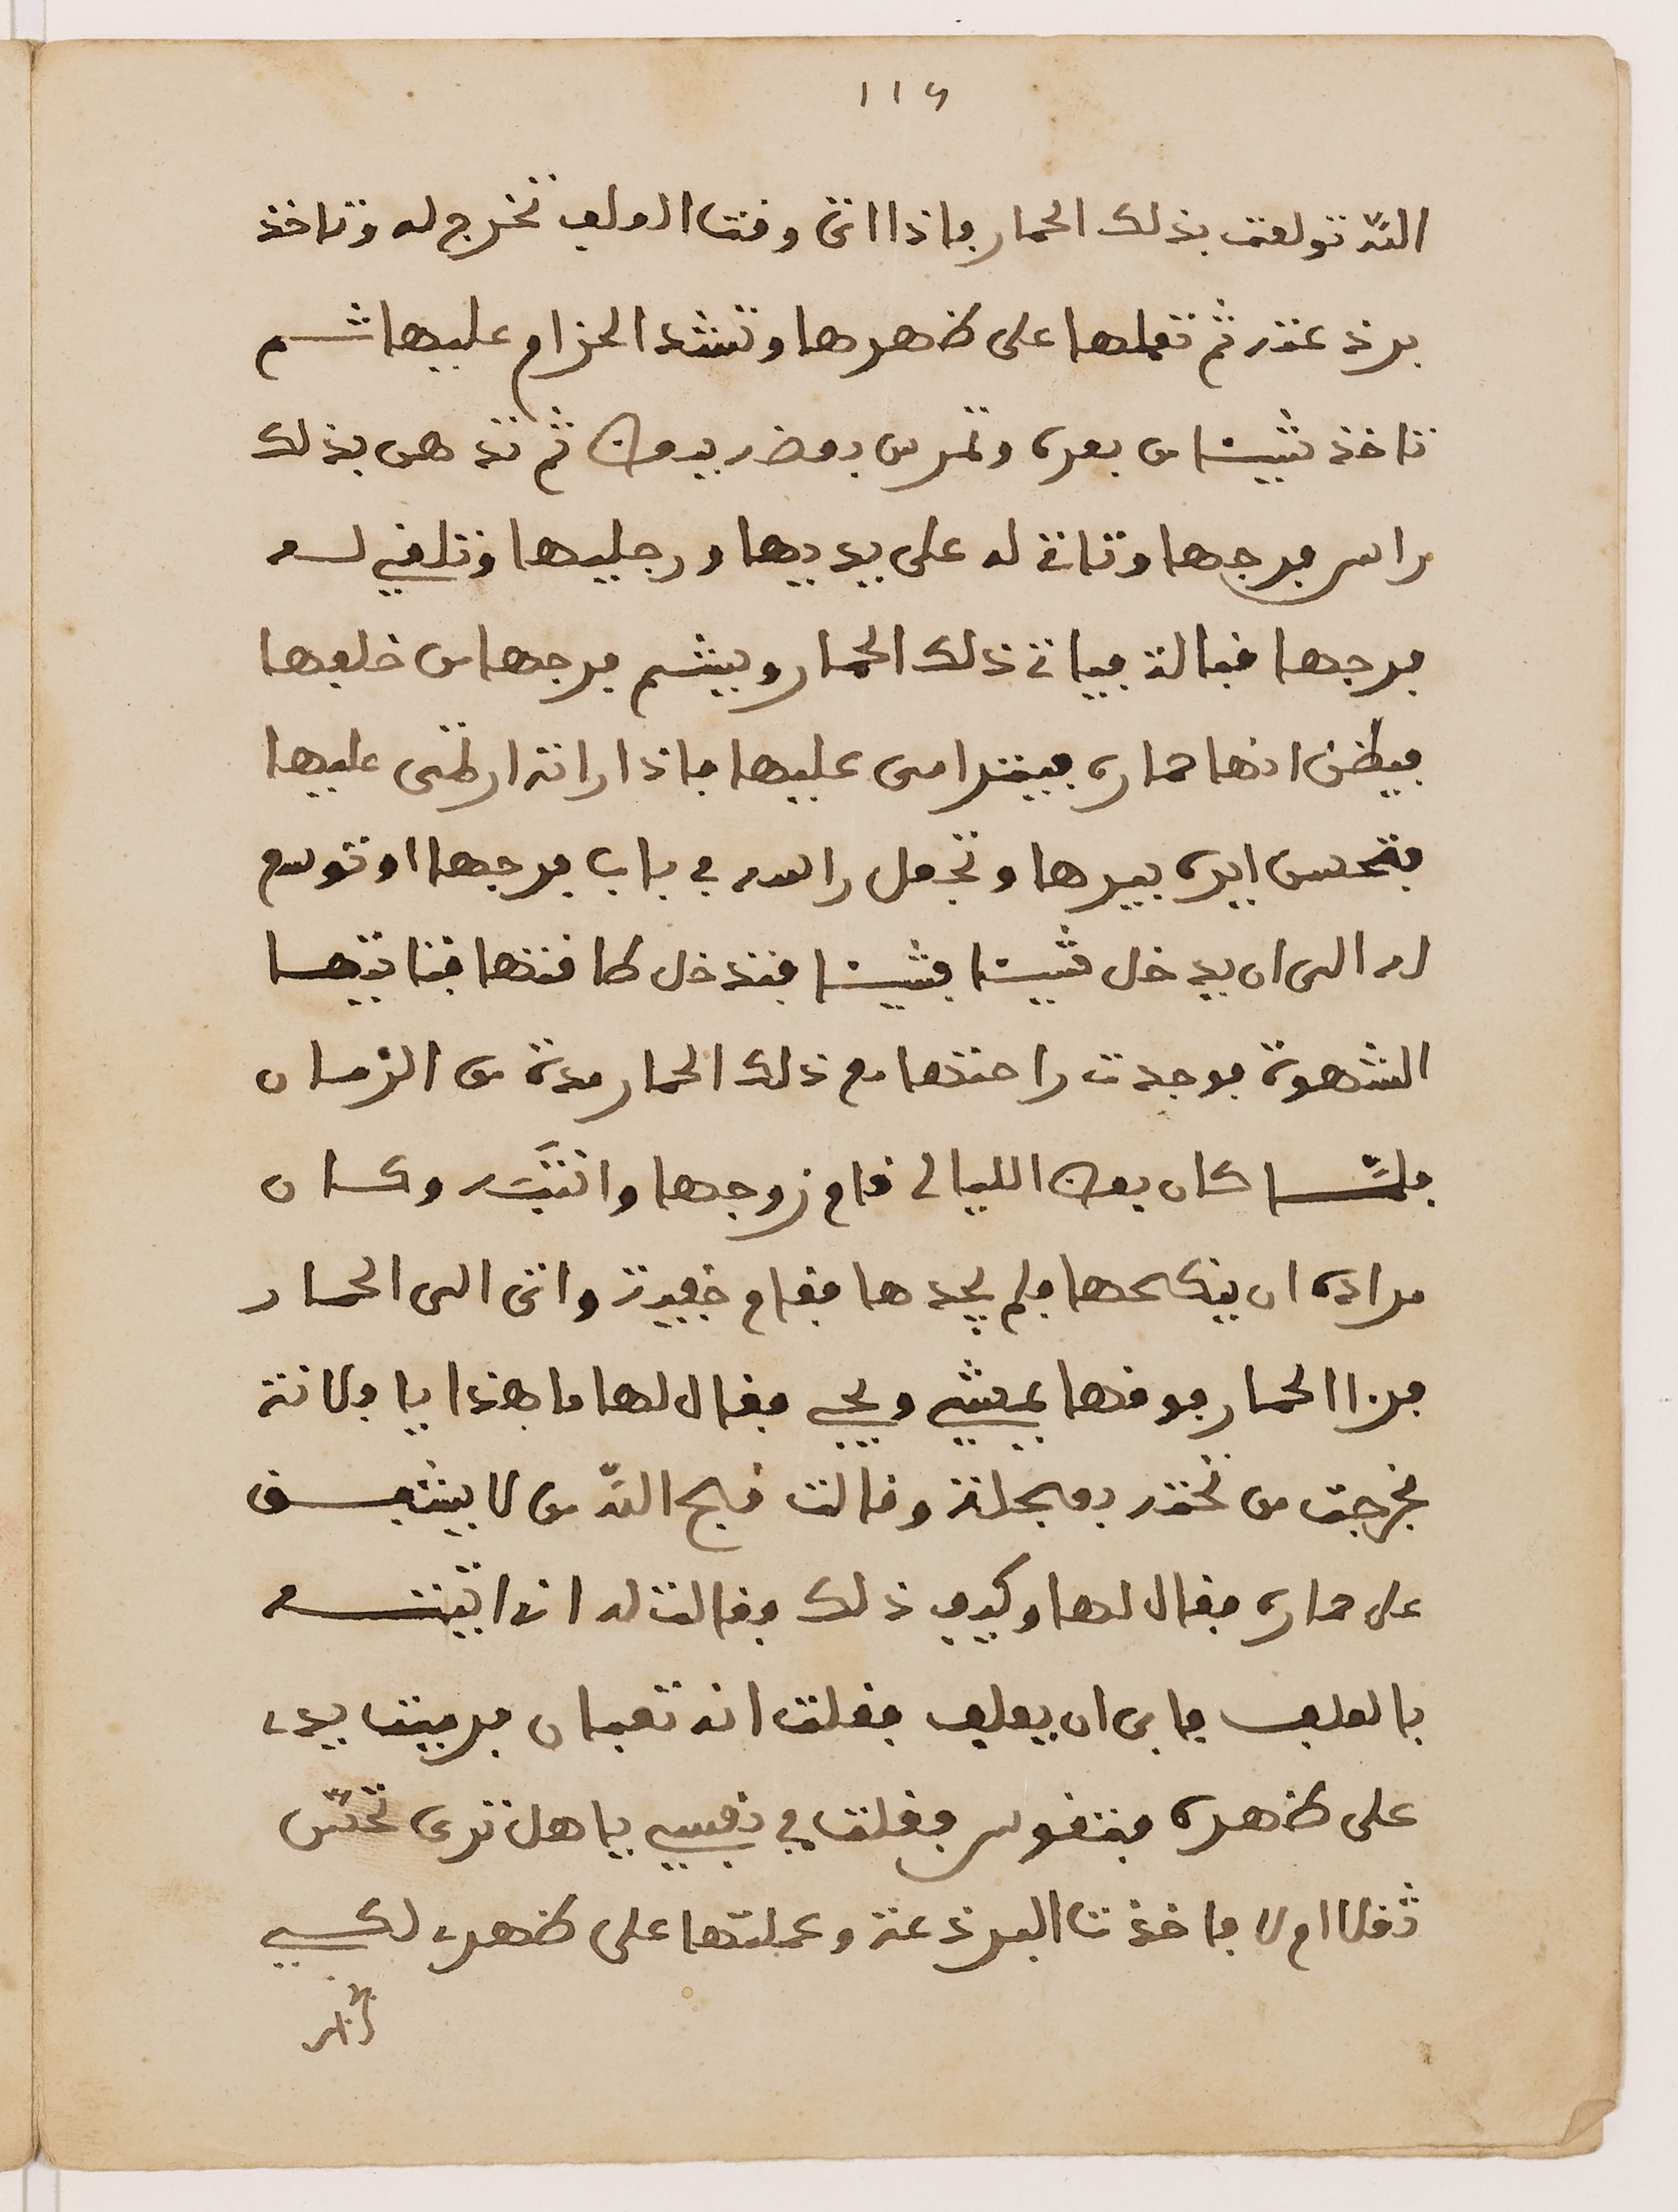 ١١٤
اللّه تولعت بذلك الحمار فاذا اتى وقت العلف تخرج له وتاخذ
برذعته ثم تعملها على ظهرها وتشد الحزام عليها ثم
تاخذ شيئا من بعره وتمرس بعضه ببعض ثم تدهن بذلك
راس فرجها وتاتى له على يديها ورجليها وتلقي له
فرجها قبالة فياتى ذلك الحمار ويشم فرجها من خلفها
فيظن انها حماره فيترامى عليها فاذا راته ارتمى عليها
تحبس ايره بيدها وتجعل راسه في باب فرجها او توسع
له الى ان يدخل شيئا فشيئا فتدخل كافتها فتاتيها
الشهوة فوجدت راحتها مع ذلك الحمار مدة من الزمان
فلمّا كان بعض الليالى قام زوجها وانتبَه وكان
مراده ان ينكحها فلم يجدها فقام خفية واتى الى الحمار
فرا الحمار فوقها يمشي ويجي فقال لها ما هذا يا فلانة
فخرجت من تحته بعجلة وقالت قبح اللّه من لا يشفق
على حماره فقال لها وكيف ذلك فقالت له انى اتيته
بالعلف فابى ان يعلف فعلمت انه تعبان فرميت يدى
على ظهره فتقوس فقلت في نفسي يا هل ترى تحسّ
ثقلا ام لا فاخذت البرذعة وعملتها على ظهرى لكي